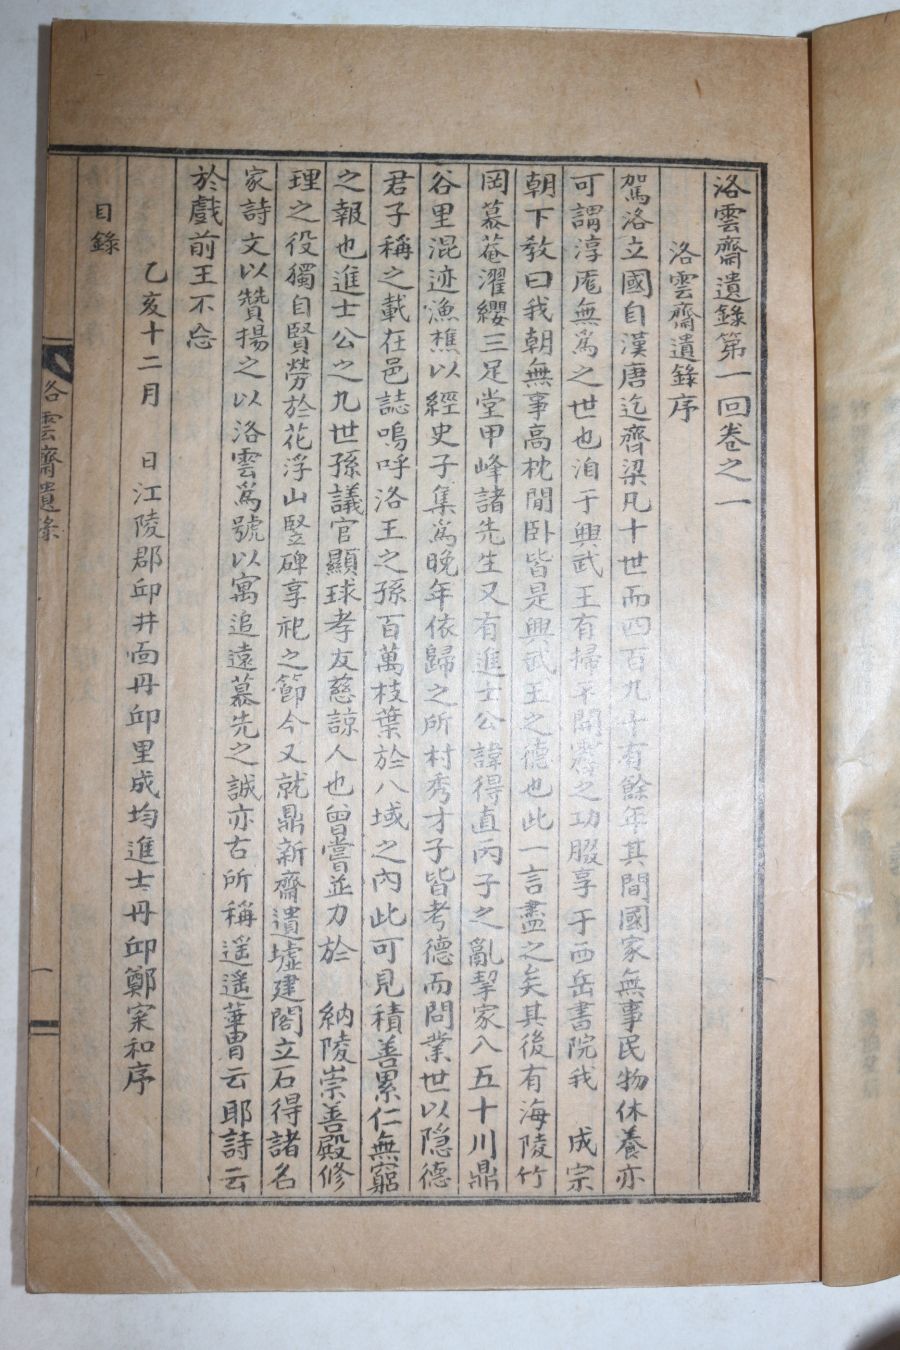 洛雲齋遺錄第一回卷之一
洛雲齋遺錄序
駕洛立國自漢唐迄齊梁凡十世而四百九十有餘年其間國家無事民物休養亦
可謂淳厖無爲之世也洎于興武王有掃平開濟之功腏享于西岳書院我 成宗
朝下敎曰我朝無事高枕閒卧皆是興武王之德也此一言盡之矣其後有海陵竹
岡慕菴濯纓三足堂甲峰諸先生又有進士公諱得直丙子之亂挈家入五十川鼎
谷里混迹漁樵以經史子集爲晚年依歸之所村秀才子皆考德而問業世以隐德
君子稱之載在邑誌嗚呼洛王之孫百萬枝葉於八域之內此可見積善累仁無窮
之報也進士公之九世孫議官顯球孝友慈諒人也曾嘗並力於 納陵崇善殿修
理之役獨自賢勞於花浮山竪碑享祀之節今又就鼎新齋遺墟建閣立石得諸名
家詩文以贊揚之以洛雲爲號以寓追遠慕先之誠亦古所稱遥遥華胄云耶詩云
於戲前王不忘
乙亥十二月 日江陵郡邱井面丹邱里成均進士丹邱鄭寀和序
目錄
洛雲齋遺錄
一